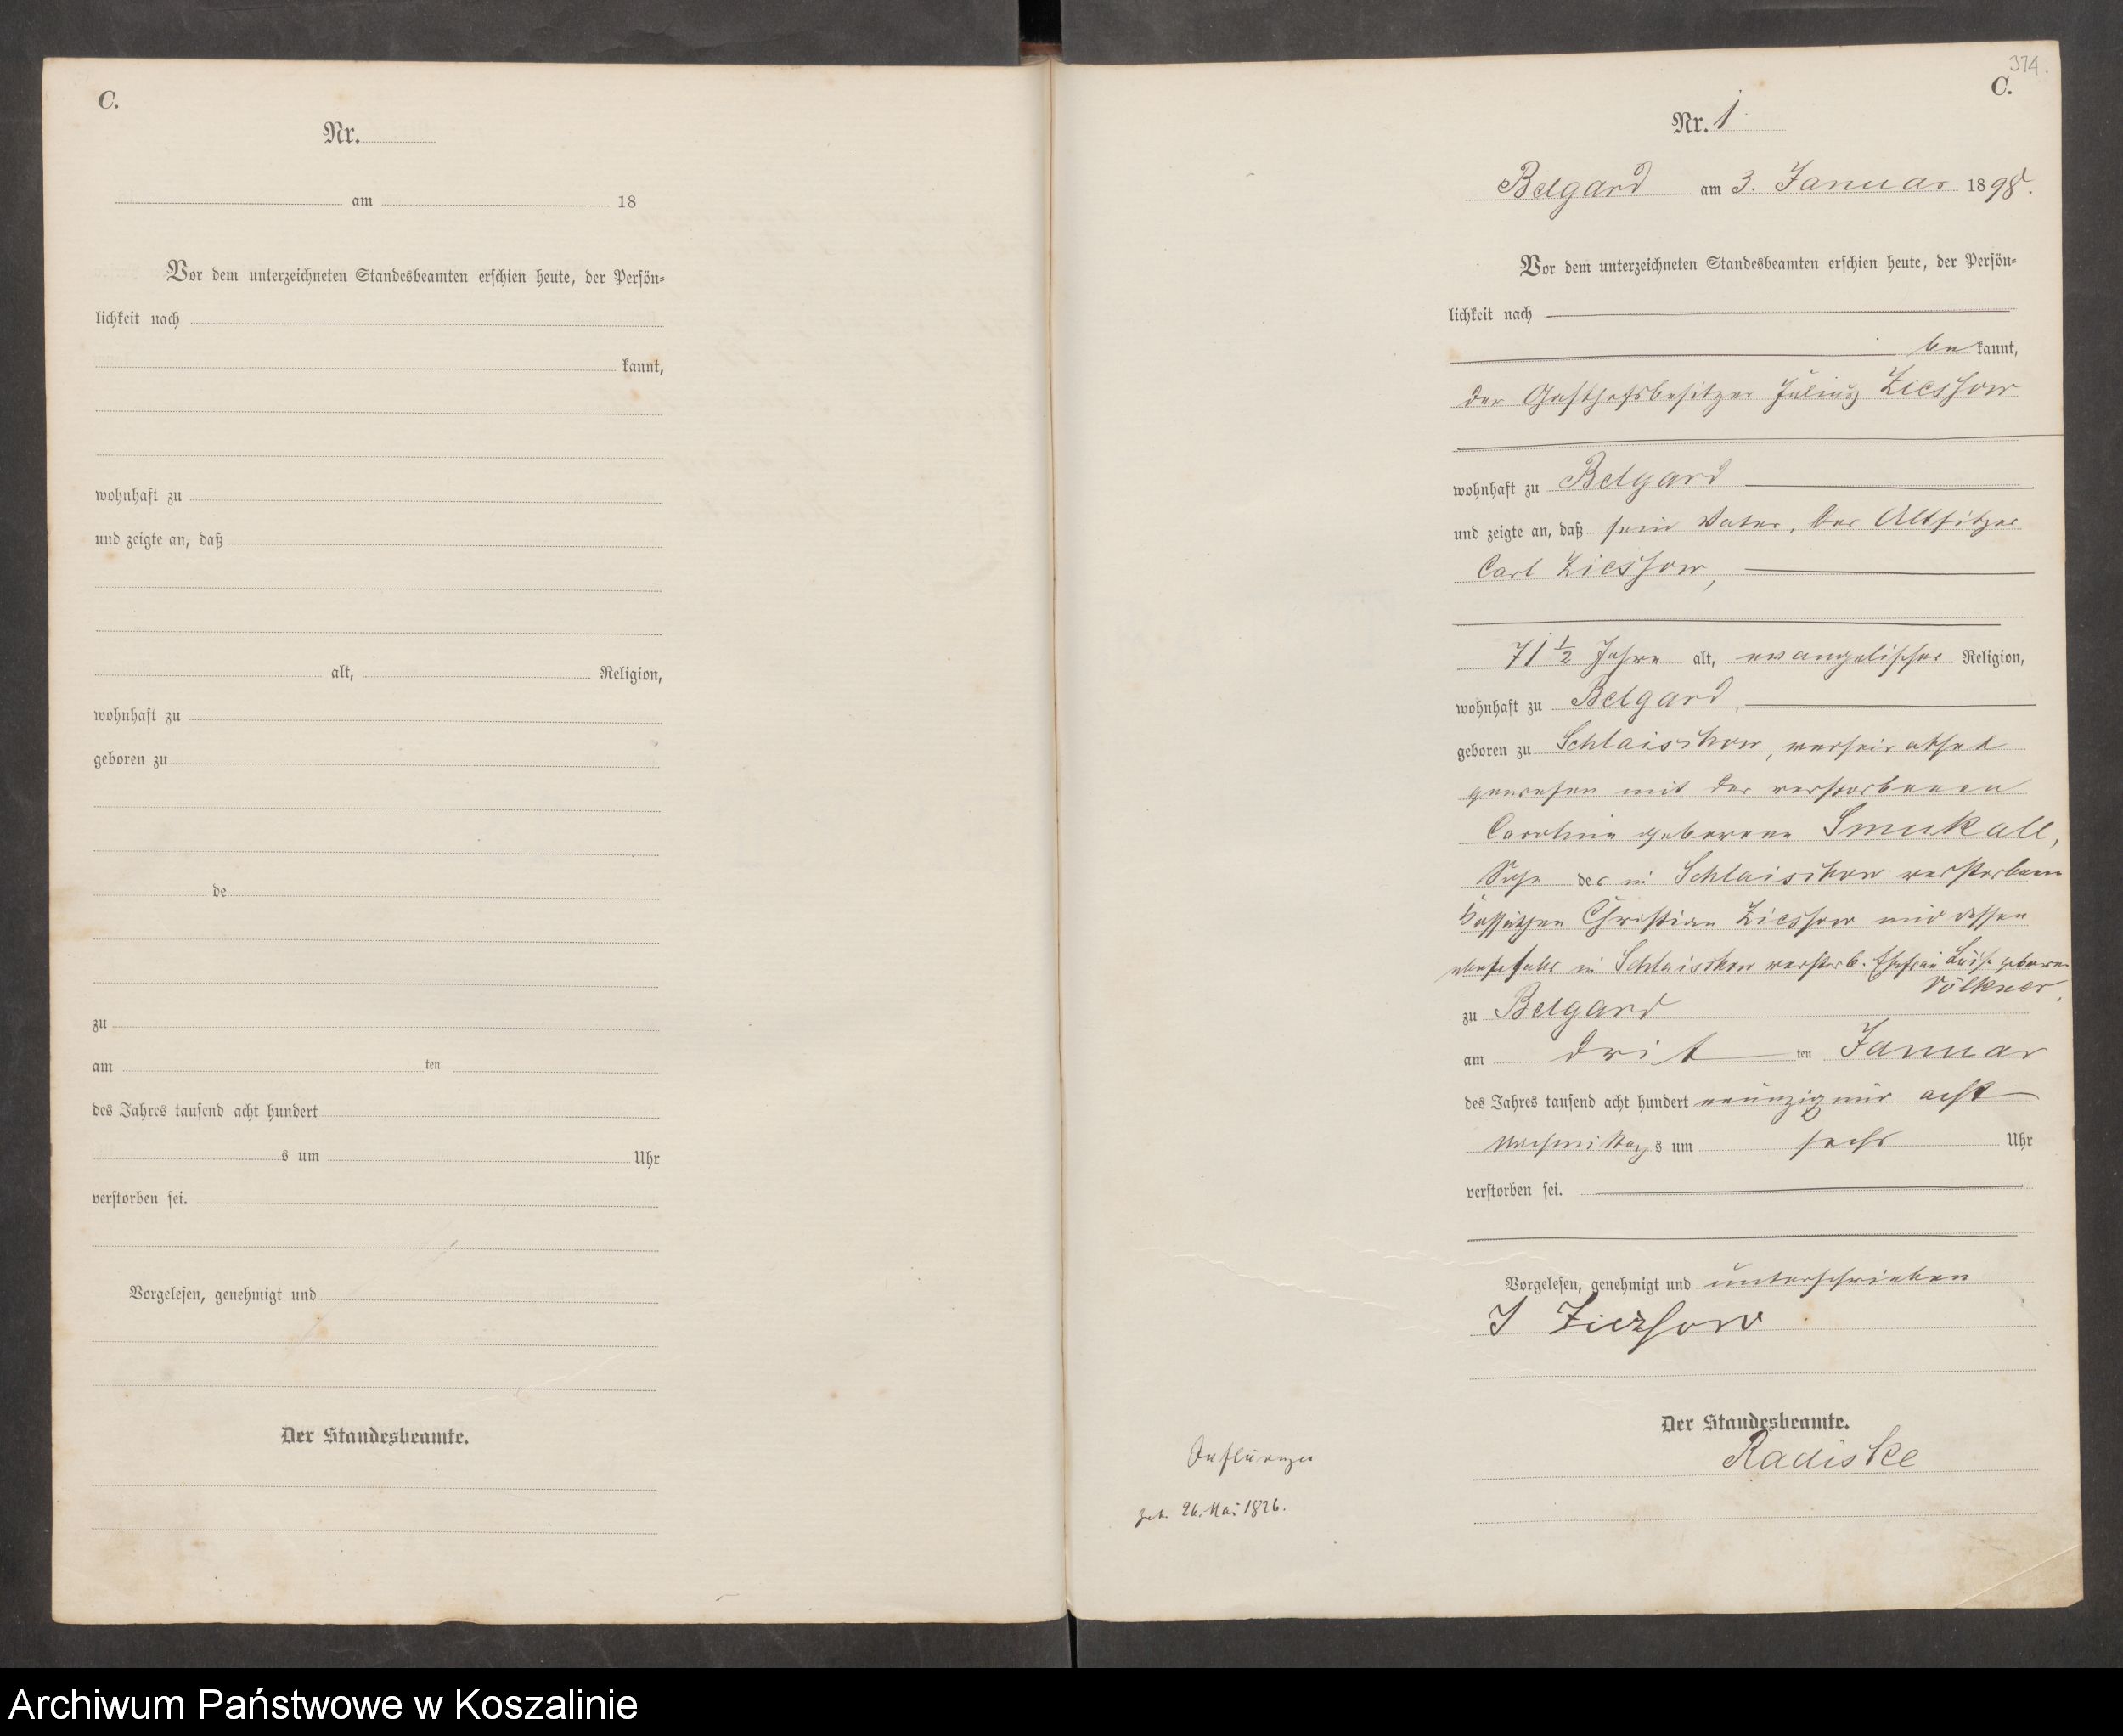 C.
Nr.
am 18
Vor dem unterzeichneten Standesbeamten erschien heute, der Persön-
lichkeit nach
kannt,
wohnhaft zu
und zeigte an, daß
alt, Religion,
wohnhaft zu
geboren zu
de
zu
am ten
des Jahres tausend acht hundert
s um Uhr
verstorben sei.
Vorgelesen, genehmigt und
Der Standesbeamte.
374.
C.
Nr. 1
Belgard am 3. Januar 1898.
Vor dem unterzeichneten Standesbeamten erschien heute, der Persön-
lichkeit nach
bekannt,
der Gasthofsbesitzer Julius Zieshow
wohnhaft zu Belgard
und zeigte an, daß sein Vater, der Altsitzer
Carl Zieshow,
71 1/2 Jahre alt, evangelischer Religion,
wohnhaft zu Belgard,
geboren zu Schlaischow, verheirathet
gewesen mit der verstorbenen
Caroline geborene Smukall,
Sohn des in Schlaischow verstorbenen
Christian Zieshow und dessen
ebenfalls in Schlaischow verstorb. Ehefrau Luise geborene
Völkner,
zu Belgard
am dritten Januar
des Jahres tausend acht hundert neunzig und acht
Nachmittags um sechs Uhr
verstorben sei.
Vorgelesen, genehmigt und unterschrieben
J Ziershow
Der Standesbeamte.
Radiske
Influenza
geb. 26. Mai 1826.
Archiwum Państwowe w Koszalinie